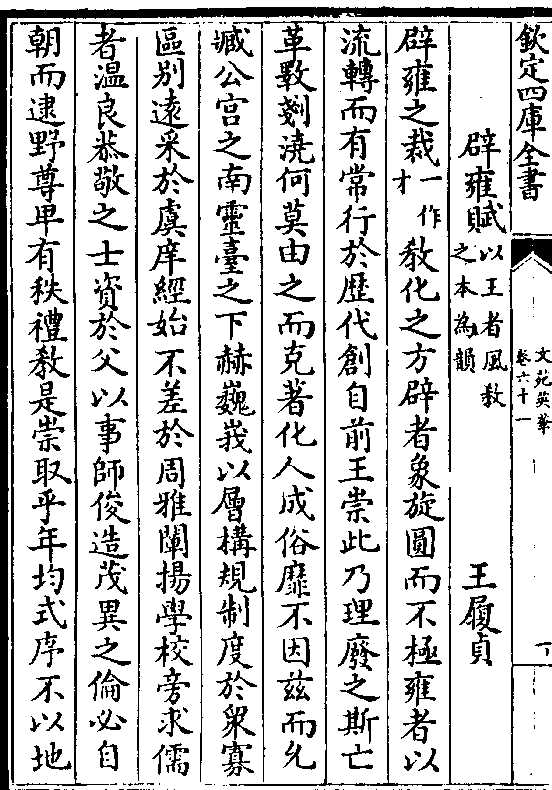 欽定四庫全書
文苑英華
卷六十一
辟雍賦 以王者風教之本為韻 王履貞
辟雍之裁一作才教化之方辟者象旋圓而不極雍者以
流轉而有常行於歴代創自前王崇此乃理廢之斯亡
革斁剗澆何莫由之而克著化人成俗靡不因兹而允
臧公宫之南靈臺之下赫巍峩以層構規制度於衆寡
區别逺采於虞庠經始不差於周雅闡揚學校旁求儒
者温良恭敬之士資於父以事師俊造茂異之倫必自
朝而逮野尊卑有秩禮教是崇取乎年均式序不以地